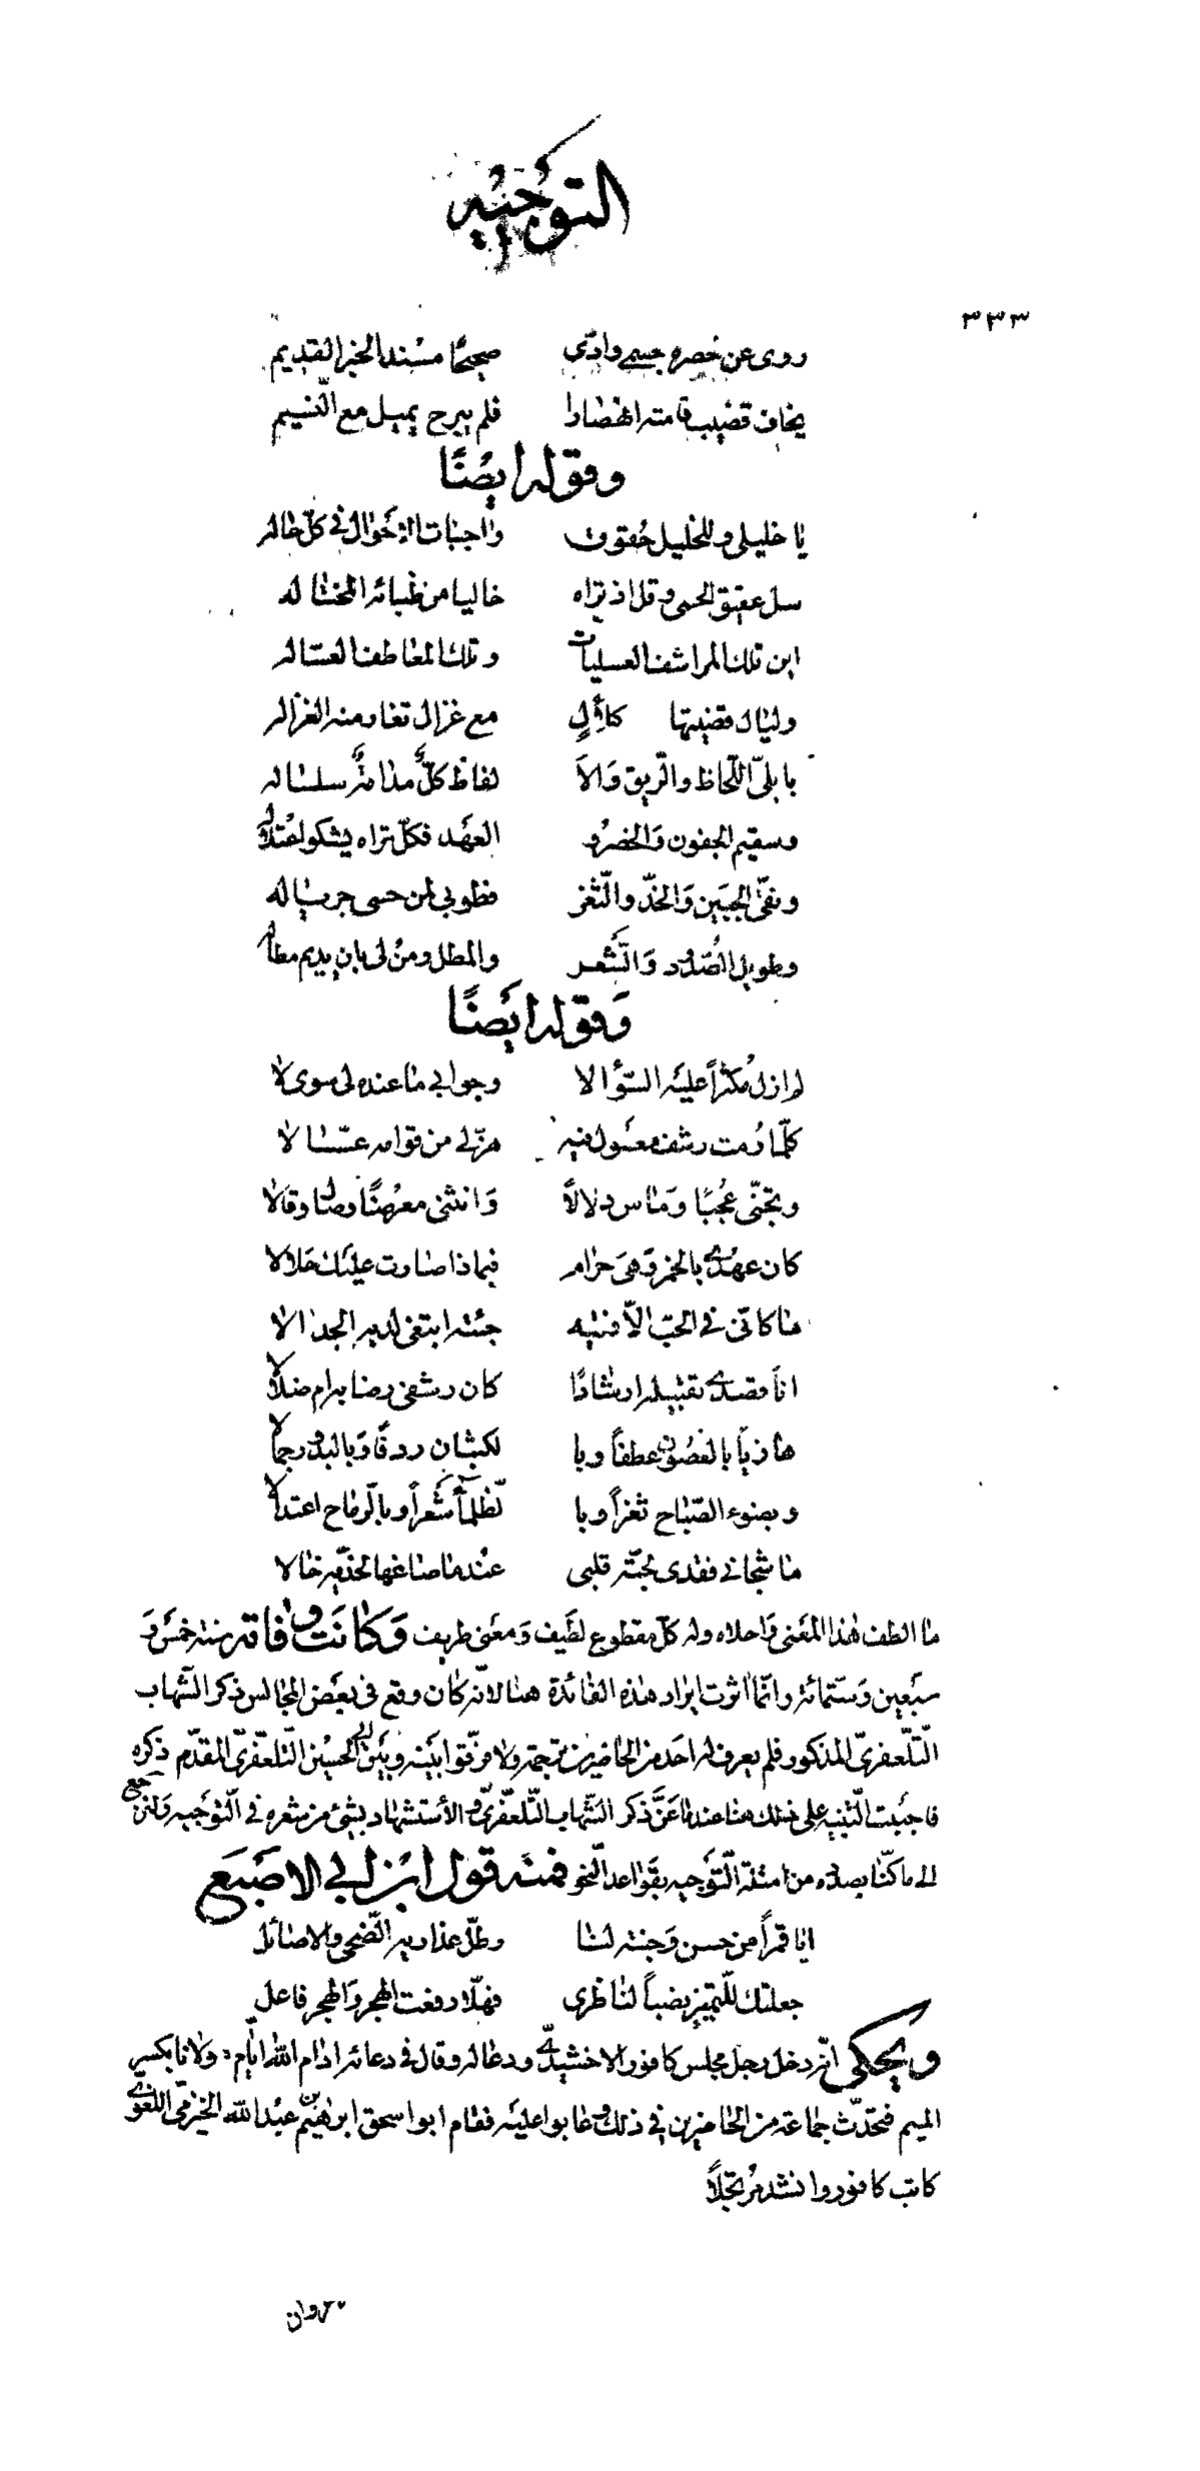 التوجيه
٣٣٣
روى عن خصره جسمي وادّى صحيحًا مسند الخبر القديم
يخاف قضيب قامته انهصارا فلم يبرح يميل مع النّسيم
وقوله ايضًا
يا خليلي وللخليل حُقوق واجبات الأحوال في كلّ حاله
سل عقيق الحمى وقل اذ تراه خاليا من ظبائه المختاله
اين تلك المراشف العسليات وتلك المعاطف العسّاله
وليال قضيتها كلآلٍ مع غزال تغار منه الغزاله
بابليّ اللّحاظ والرّيق والا لفاظ كلٌّ مدامةٌ سلساله
وسقيم الجفون والخصر و العهد فكلّ تراه يشكو اعتلاله
ونقيّ الجبين والخدّ والثّغر فطوبى لمن حسى جرياله
وطويل الصّدود والشّعر والمطل ومن لي بان يديم مطاله
وقوله ايضًا
لم ازل مكثراً عليه السّؤالا وجوابي ما عنده لي سوى لا
كلّما رُمت رشف معسول فيه هزّ لي من قوامه عسّالا
وتجنّى عُجبًا وماس دلالاً وانثنى معرضًا وصال وقالا
كان عهدي بالخمر وهي حرام فبماذا صارت عليك حلالا
ما كأنّي في الحبّ الاّ فقيه جئته ابتغي لديه الجدالا
انا قصدي تقبيله ارشادًا كان رشفي رضابه ام ضلالا
هازياً بالغصون عطفاً وبا لكثبان ردفًا وبالبدور جمالا
وبضوء الصّباح ثغراً وبا لظلماء شعراً وبالرماح اعتدالا
ما شجاني فقدي لحبّة قلبي عندما صاغها لخدّيه خالا
ما الطف هذا المعنى واحلاه وله كلّ مقطوع لطيف ومعنى طريف وكانت وفاته سنة خمس و
سبعين وستمائة وانّما اثرت ايراد هذه الفائدة هنا لانّه كان وقع في بعض المجالس ذكر الشّهاب
التّلّعفريّ المذكور فلم يعرف له احد من الحاضرين ترجمة ولا فرّقوا بينه وبين ابي الحسين التّلّعفريّ المقدّم ذكره
فاحببت التّنبيه على ذلك هنا عند ما عنّ ذكر الشّهاب التّلّعفريّ والأستشهاد بشئ من شعره في التّوجيه ولنرجع
الى ما كنّا بصدده من امثلة التّوجيه بقواعد النّحو فمنه قول ابن ابي الاصبع
ايا قمراً من حسن وجنته لنا وظلّ عذاريه الضّحى والاصائل
جعلتك للتّمييز نصباً لناظري فهلّا رفعت الهجر والهجر فاعل
ويحكى انّه دخل رجل مجلس كافور الاخشيديّ ودعا له وقال في دعائه ادام اللّه ايّام مولانا بكسر
الميم فتحدّث جماعة من الحاضرين في ذلك وعابوا عليه فقام ابو اسحق ابرهيم بن عبد اللّه اللغويّ
كاتب كافور وانشد مُرتجلاً